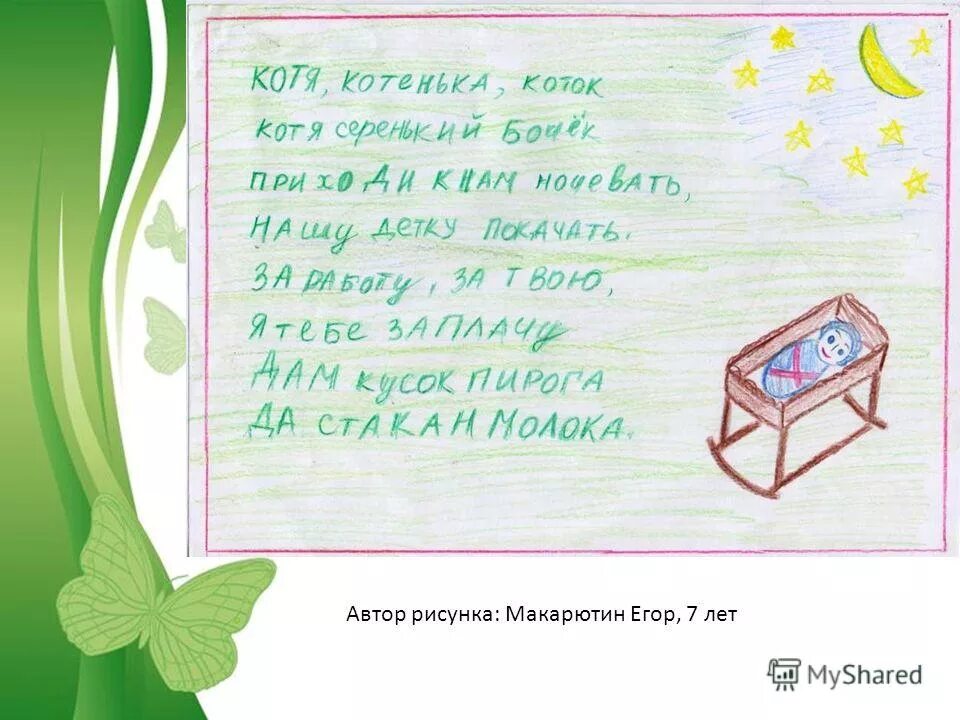 КОТЯ, КОТЕНЬКА, КОТОК
КОТЯ СЕРЕНЬКИЙ БОЧЁК
ПРИХОДИ К НАМ НОЧЕВАТЬ,
НАШУ ДЕТКУ ПОКАЧАТЬ.
ЗА РАБОТУ, ЗА ТВОЮ,
Я ТЕБЕ ЗАПЛАЧУ
ДАМ КУСОК ПИРОГА
ДА СТАКАН МОЛОКА.
Автор рисунка: Макарютин Егор, 7 лет
MyShared